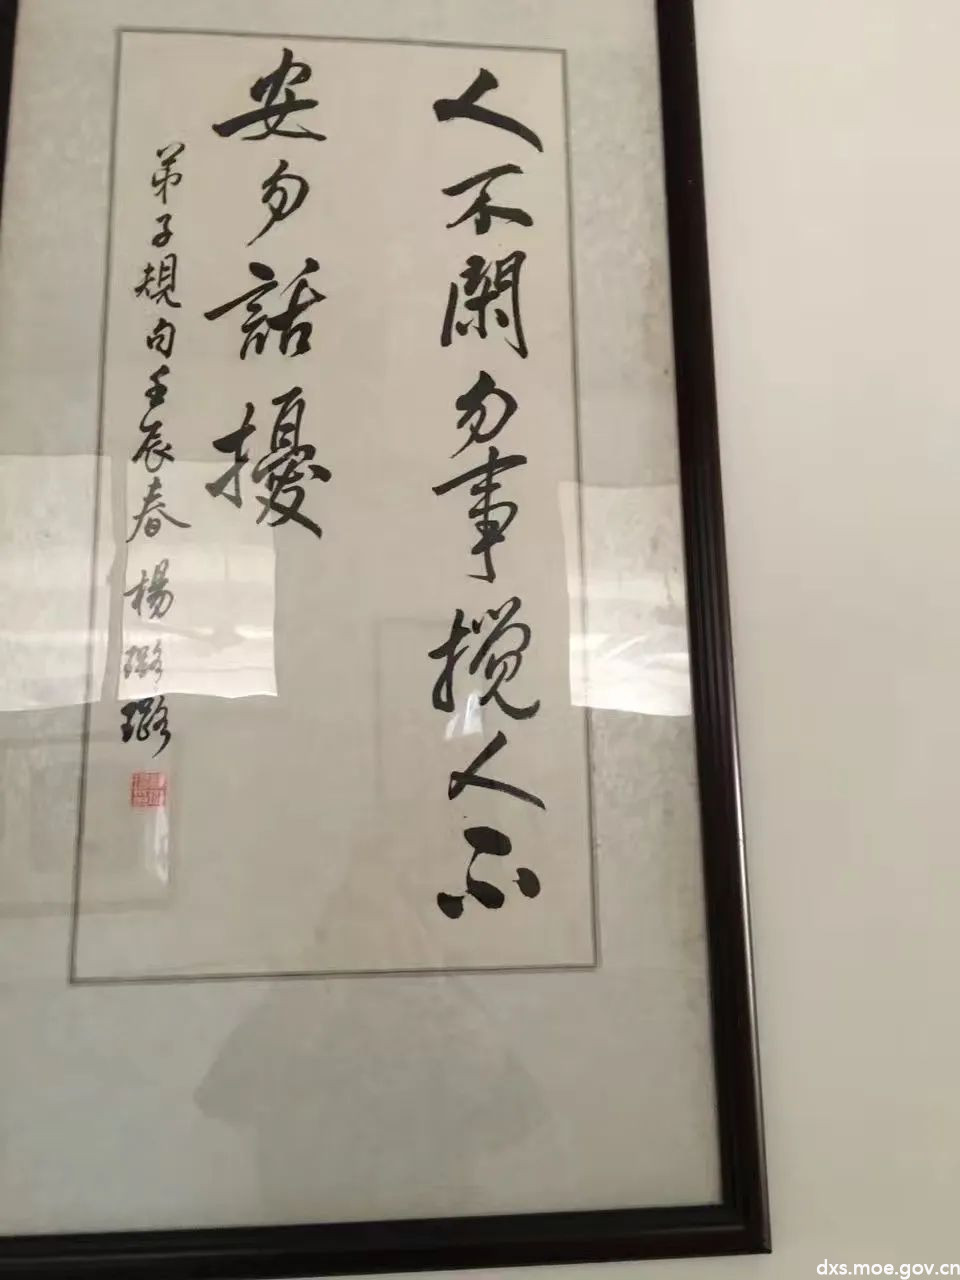 人不閑勿事攪人不
安勿話擾
弟子規句壬辰春楊璐璐
dxs.moe.gov.cn